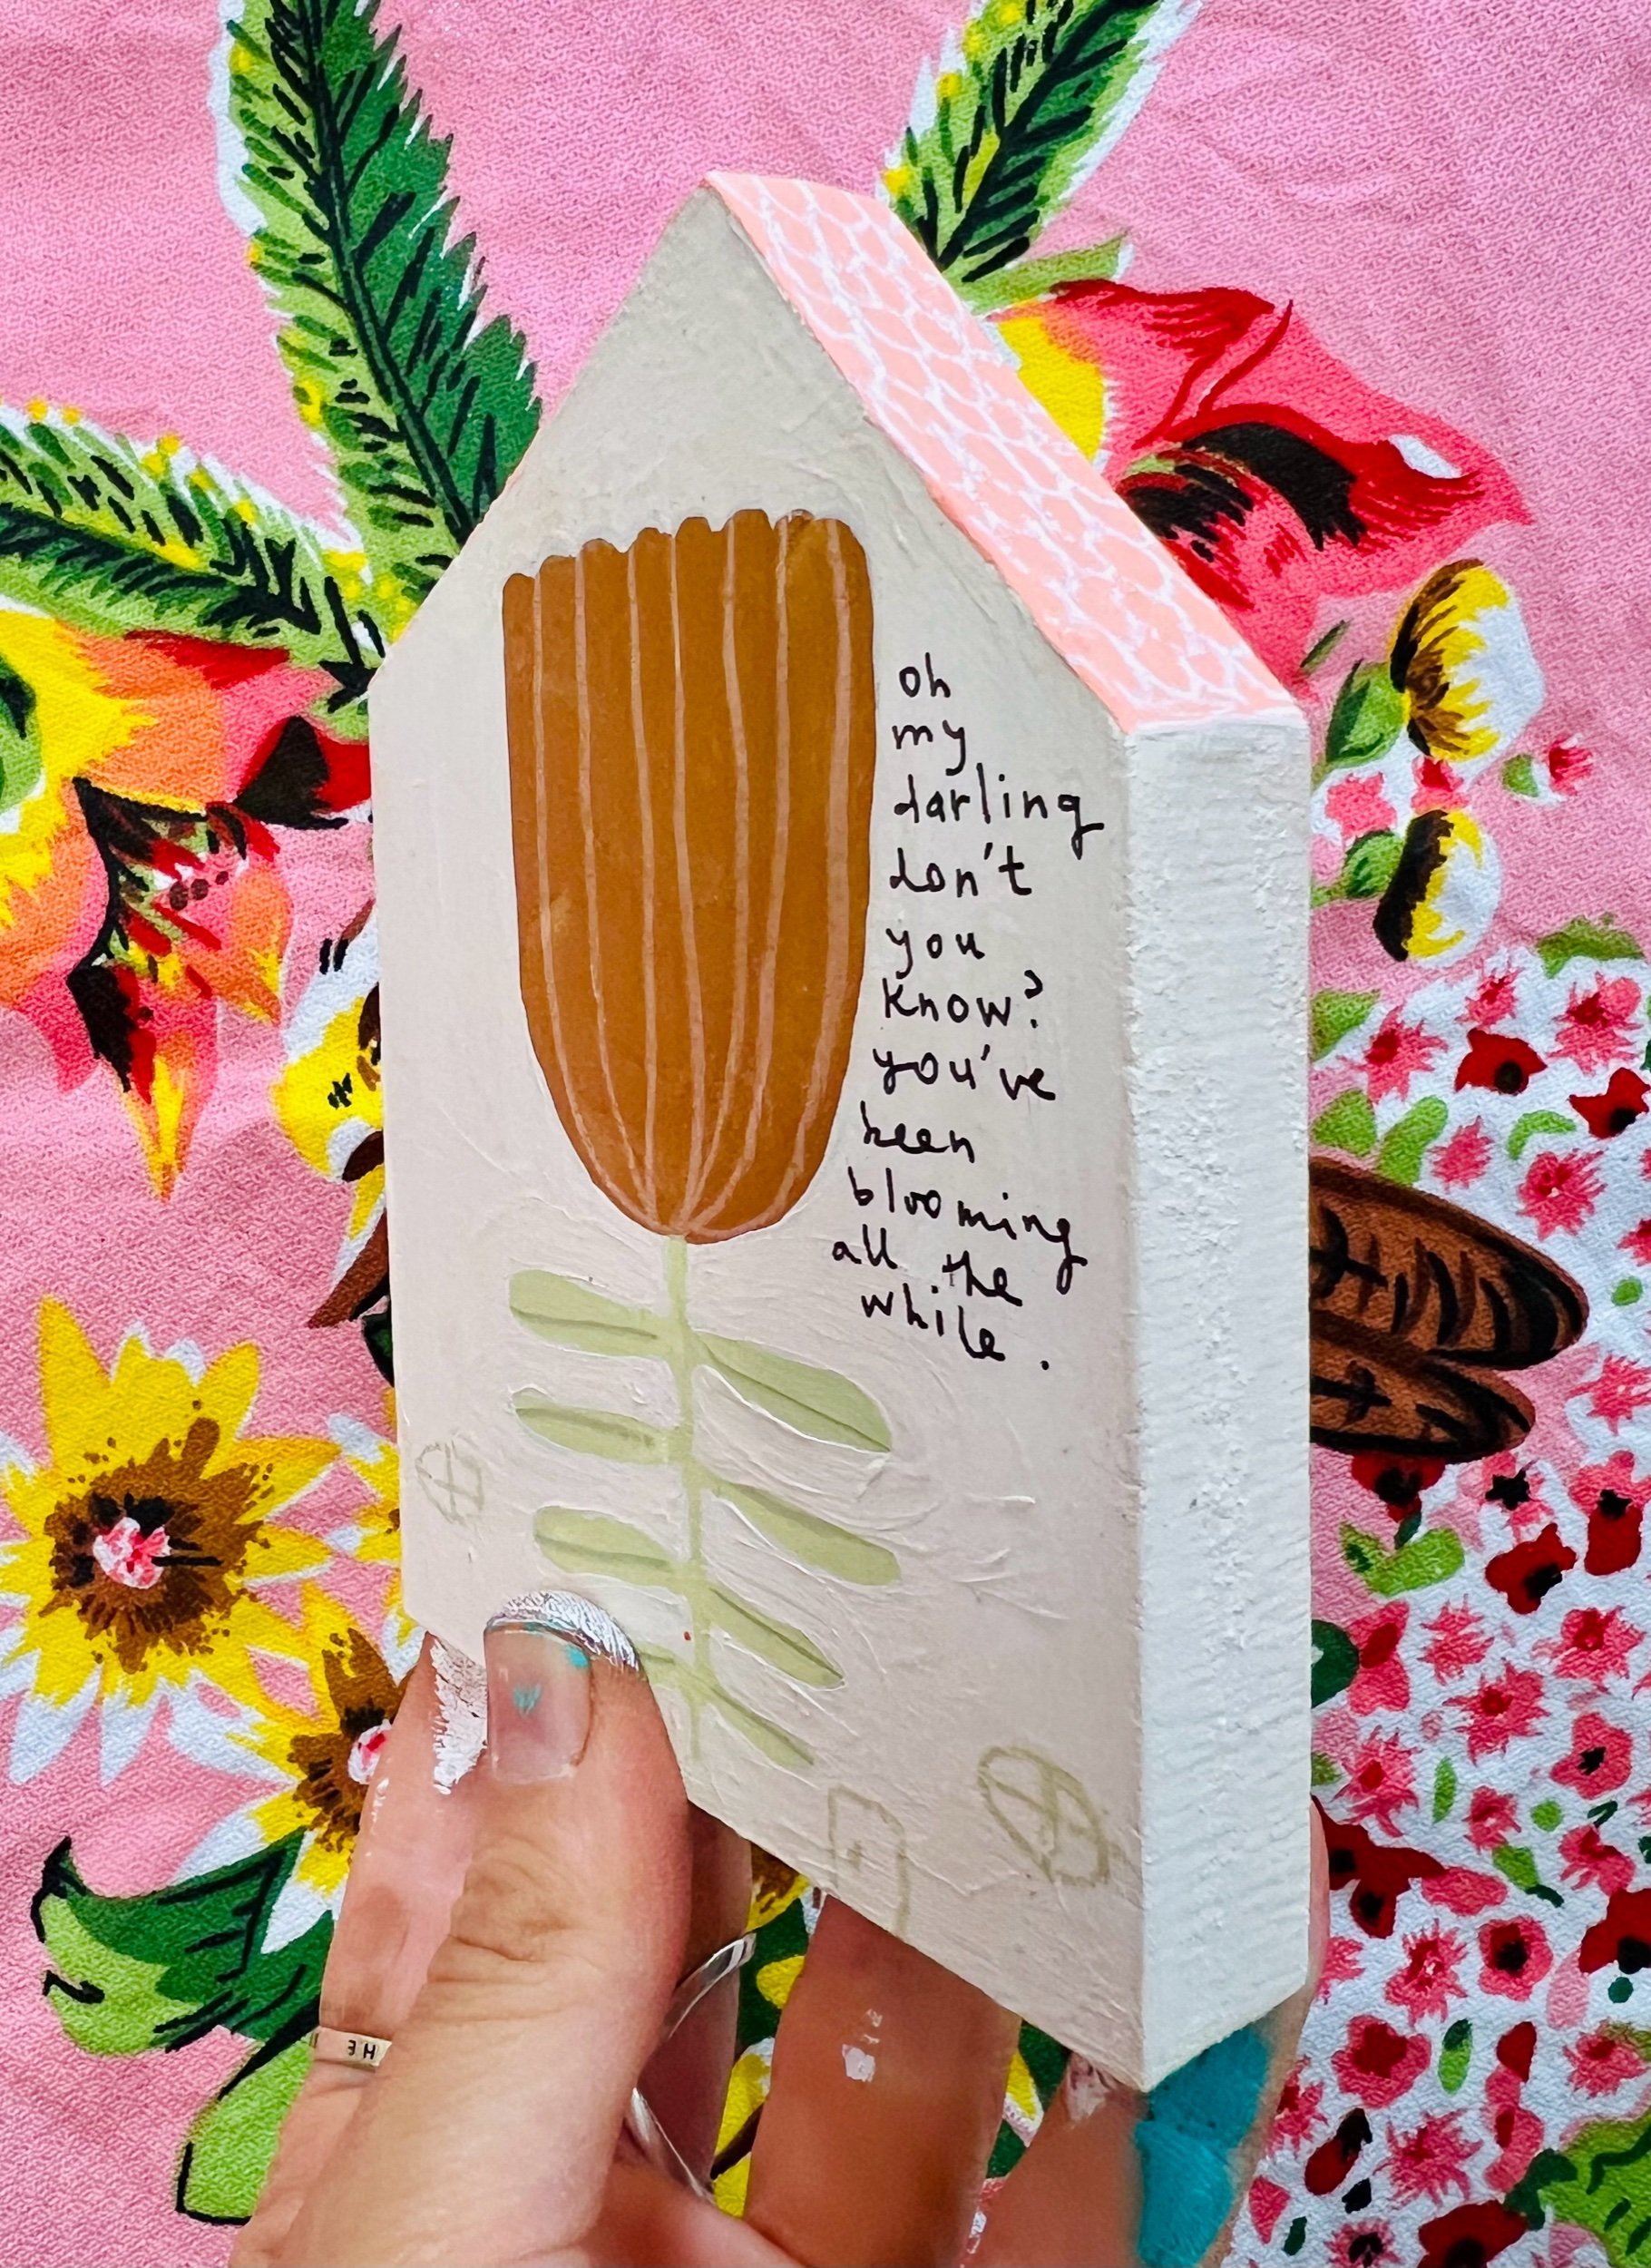 oh
my
darling
don't
you
know?
you've
been
blooming
all the
while.